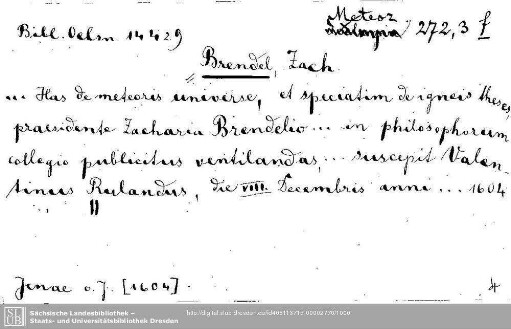 Meteor
Bibl. Oelm 14429 272,3 f
Brendel, Zach.
... Has de meteoris universe, et speciatim de igneis theses,
praesidente Zacharia Brendelio ... in philosophorum
collegio publicitus ventilandas, ... suscepit Valen-
tinus Rulandus, die VIII. Decembris anni ... 1604
Jenae o. J. [1604].
SLUB
Sächsische Landesbibliothek –
Staats- und Universitätsbibliothek Dresden